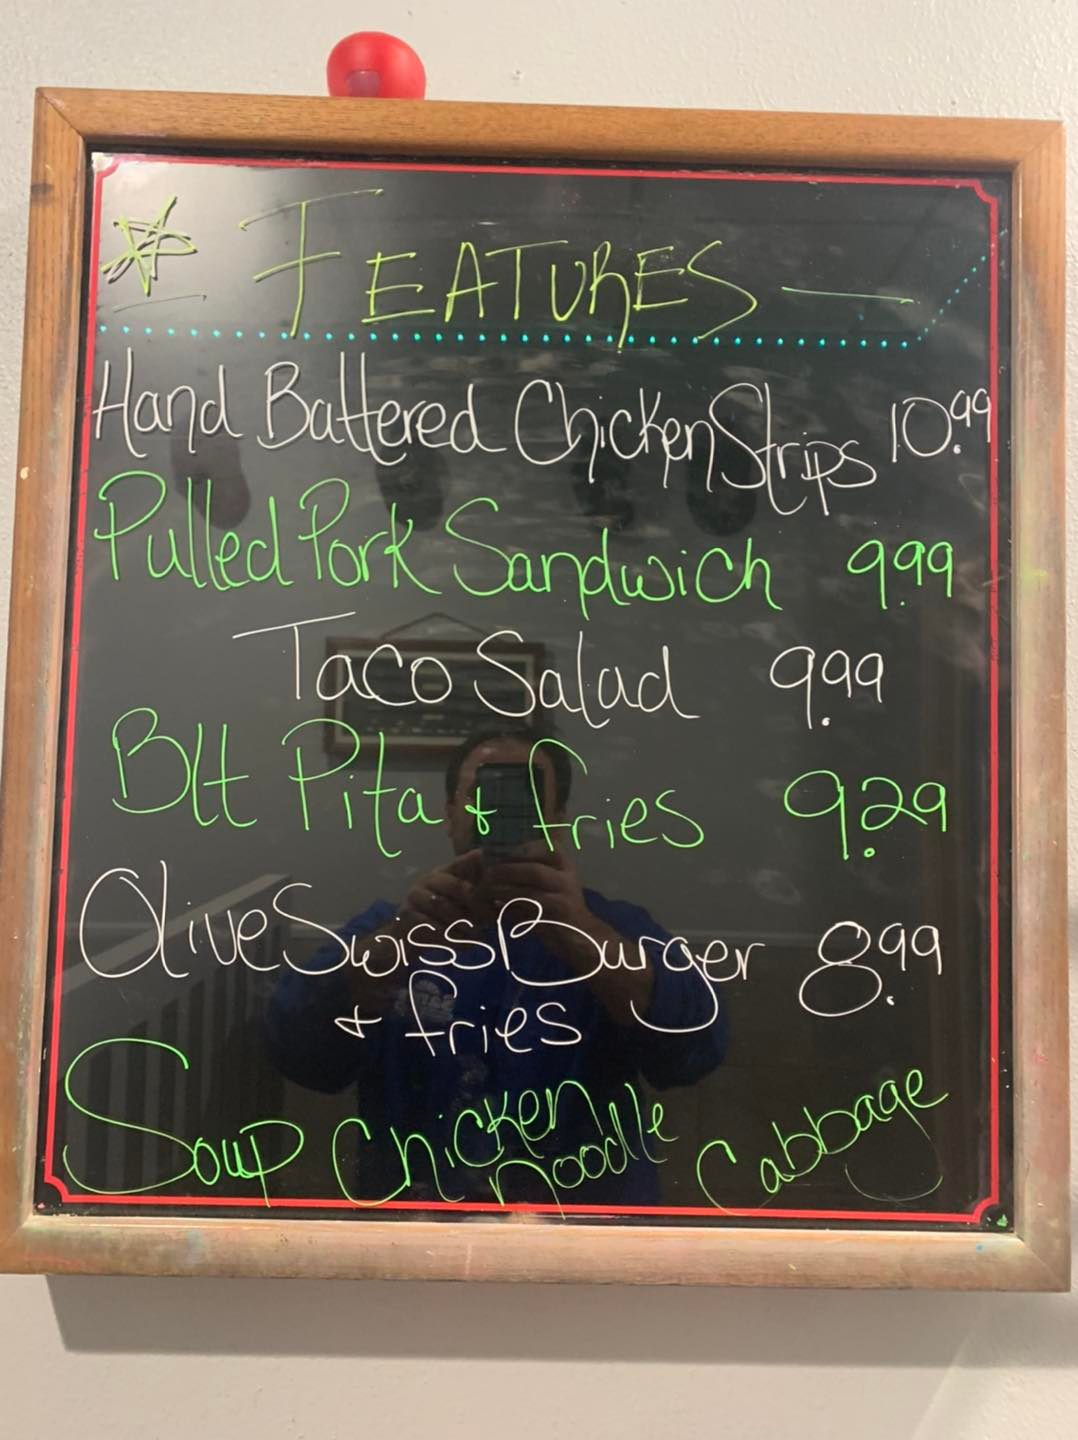 FEATURES
Hand Battered Chicken Strips 10.99
Pulled Pork Sandwich 9.99
Taco Salad 9.99
Blt Pita + fries 9.29
Olive Swiss Burger 8.99
+ fries
Soup Chicken noodle Cabbage